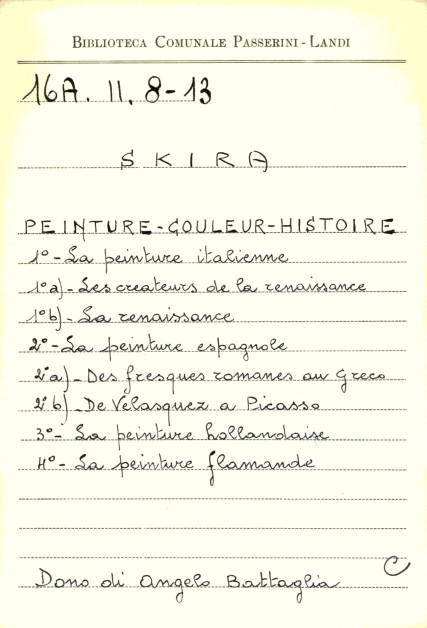 BIBLIOTECA COMUNALE PASSERINI - LANDI
16A. II. 8-13
SKIRA
PEINTURE-COULEUR-HISTOIRE
1º - La peinture italienne
1ºa) - Les createurs de la renaissance
1ºb) - La renaissance
2º - La peinture espagnole
2ºa) - Des fresques romanes au Greco
2ºb) - De Velasquez a Picasso
3º - La peinture hollandaise
4º - La peinture flamande
C
Dono di Angelo Battaglia